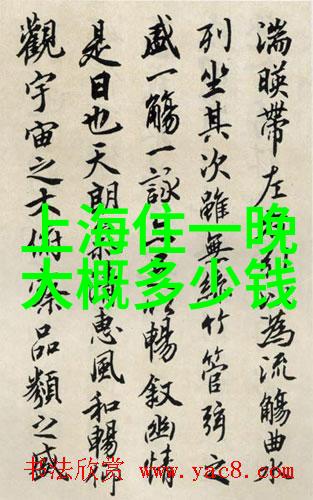 湍暎帶左引為流觴曲
列坐其次雖無絲竹管弦之
盛一觴一詠暢敘幽情
是日也天朗惠風和暢仰
觀宇宙之大俯察品類之盛
上海住一晚
大概多少钱
书法欣赏 www.yac8.com